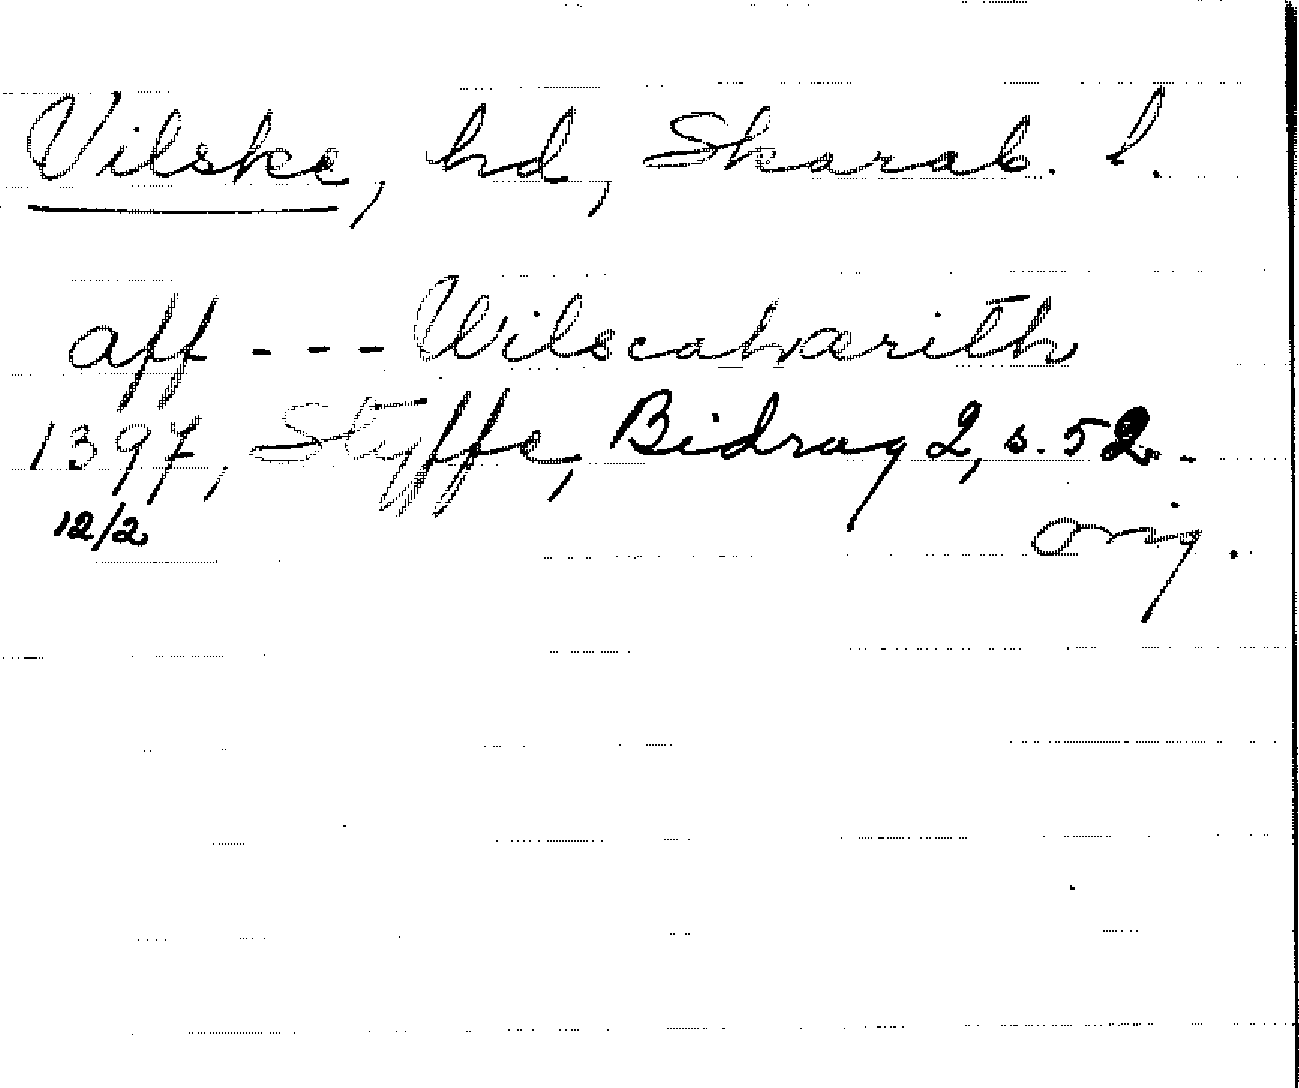 Vilske, hd, Skarab. l.
aff --- Wilscahærith
1397, Styffe, Bidrag 2, s. 52 -
12/2 orig.